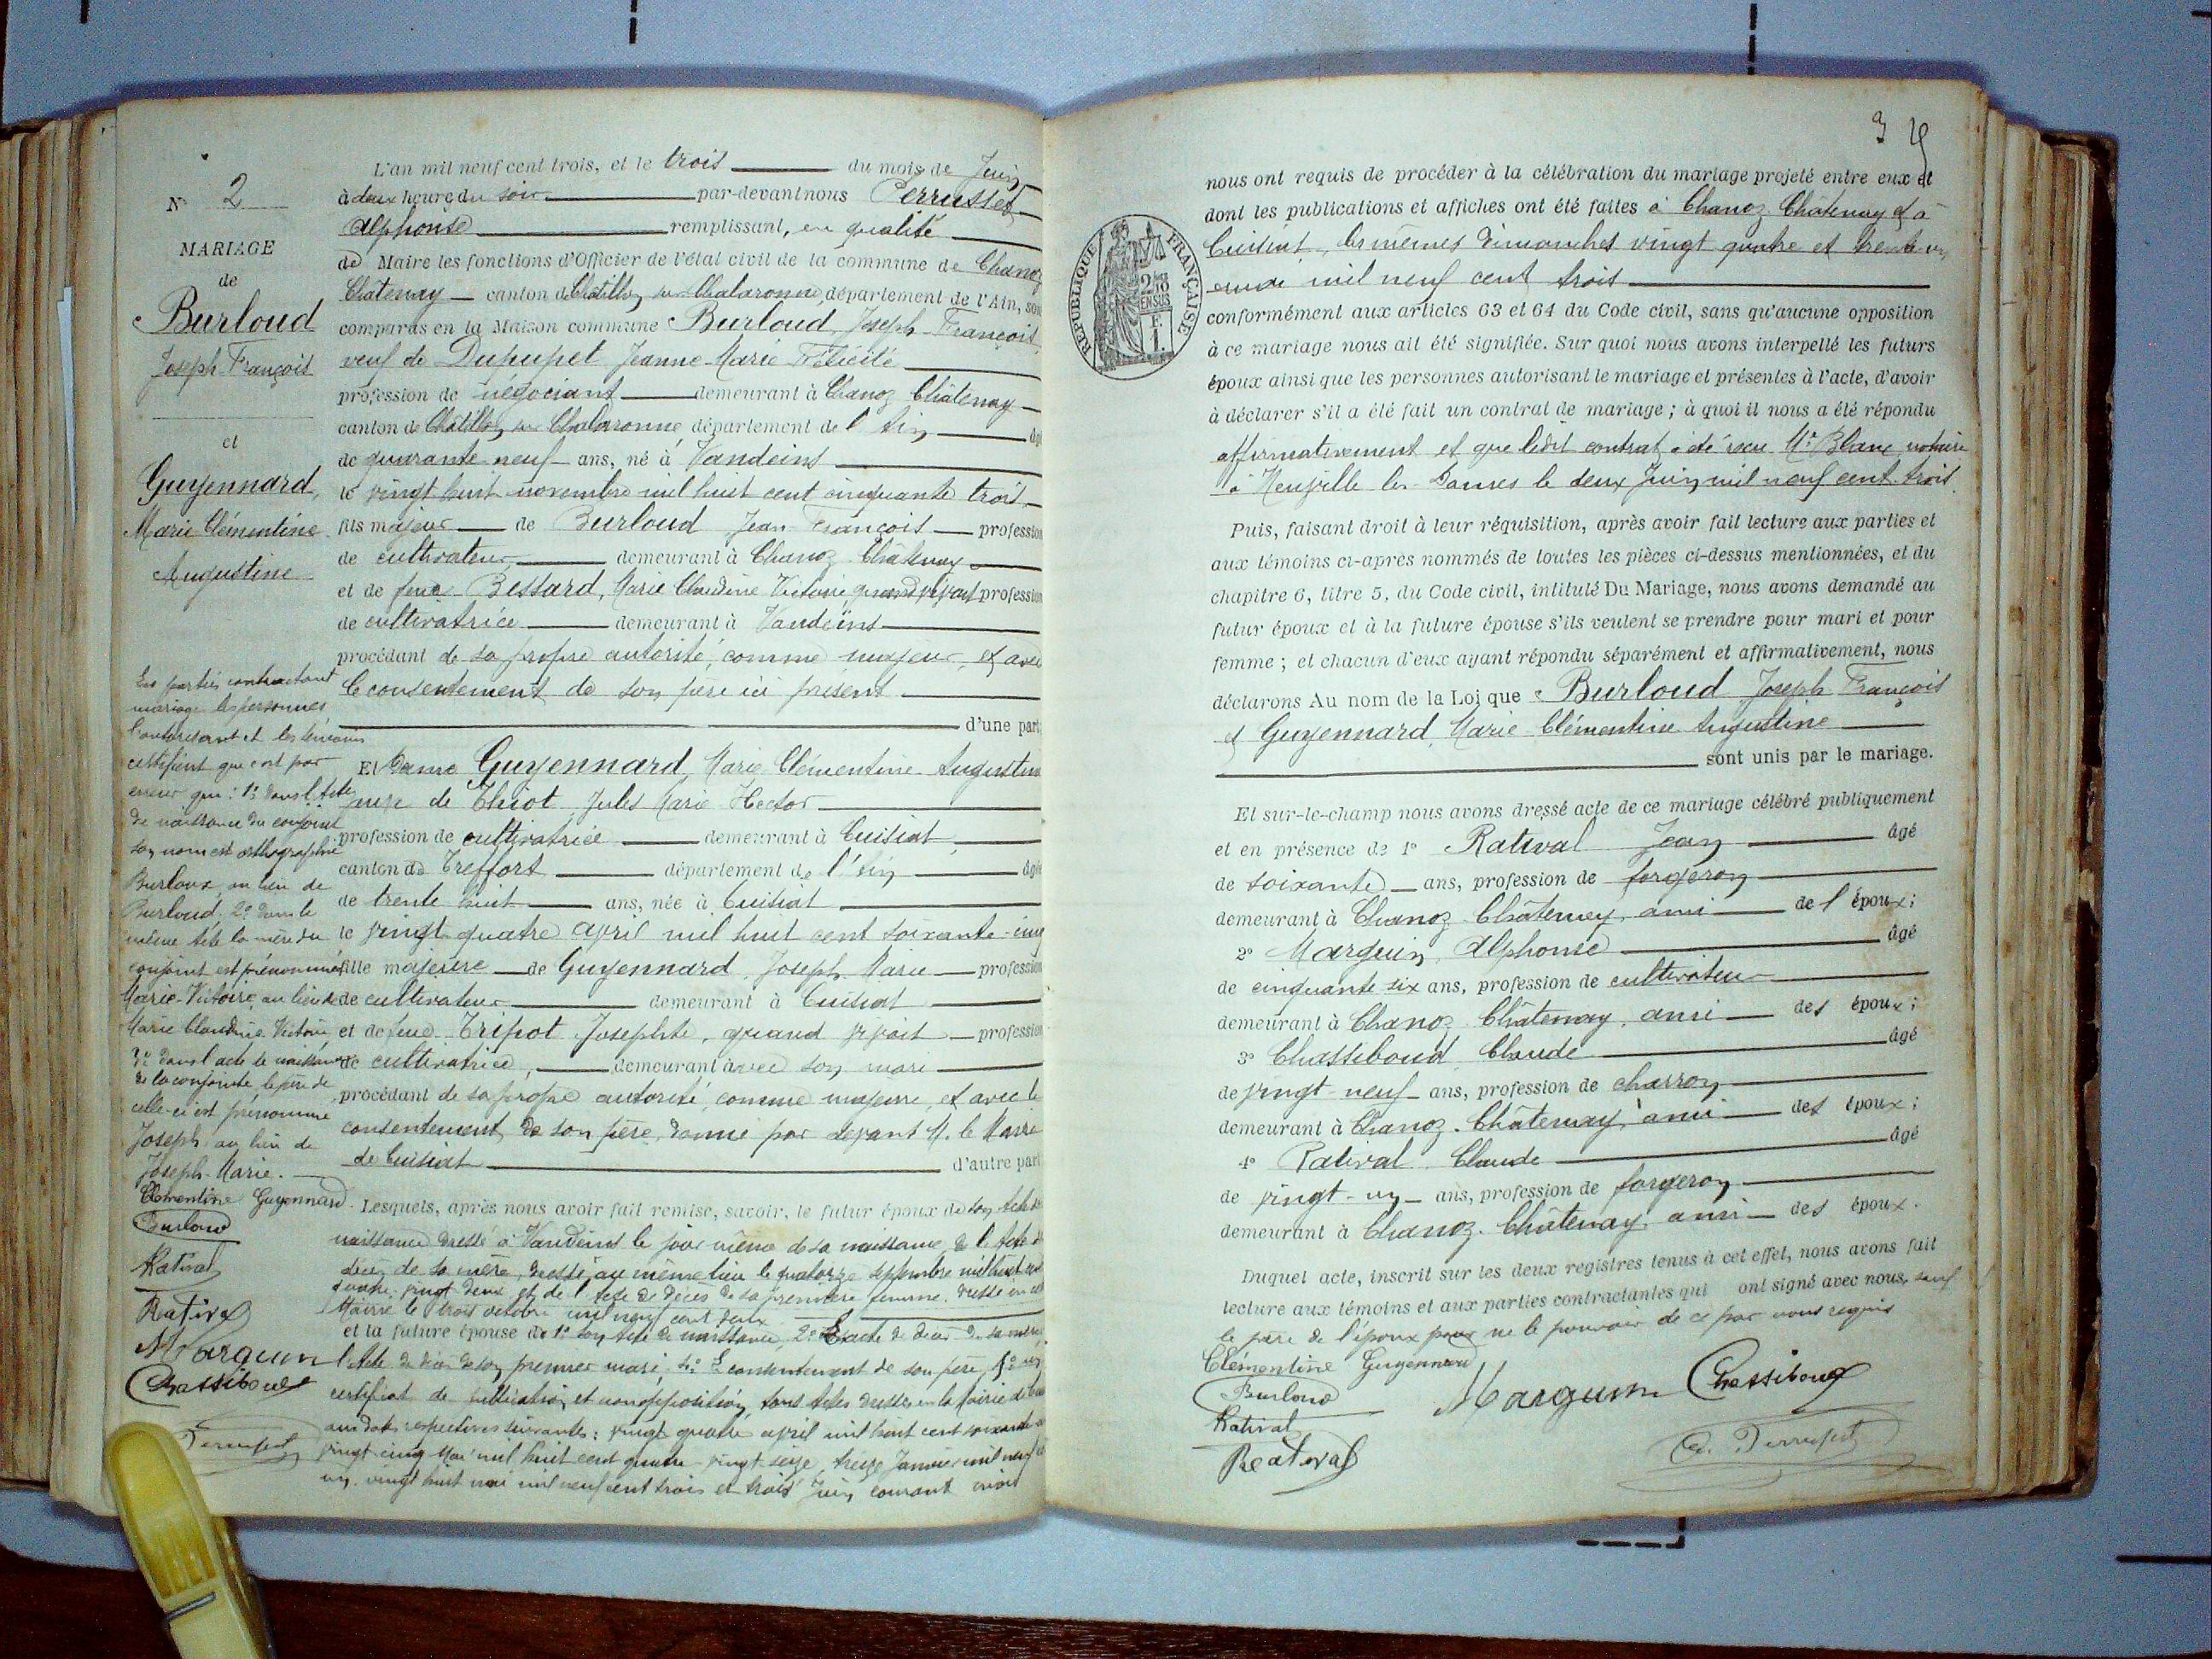 N° 2
MARIAGE
de
Burloud
Joseph François
et
Guyennard,
Marie Clémentine
Augustine
Les parties contractant
mariage les personnes
l'autorisant et les témoins
certifient que c'est par
erreur que : 1° dans l'acte
de naissance du conjoint
son nom est orthographié
Burloux au lieu de
Burloud, 2° dans le
même acte la mère du
conjoint est prénommée
Marie-Victoire, au lieu de
Marie Claudine Victoire
3° dans l'acte de naissance
de la conjointe, le père de
celle-ci est prénommé
Joseph au lieu de
Joseph-Marie.
Clémentine Guyennard
Burloud
Rativat
Rativat
Marguin
Chassiboud
Perrusset
L'an mil neuf cent trois, et le trois du mois de Juin
à deux heure du soir par-devant nous Perrusset
Alphonse remplissant, en qualité
de Maire les fonctions d'Officier de l'état civil de la commune de Chanoz
Châtenay canton de Châtillon sur Chalaronne, département de l'Ain, sont
comparus en la Maison commune Burloud, Joseph-François,
veuf de Dupupet Jeanne-Marie Félicité
profession de négociant demeurant à Chanoz Châtenay
canton de Châtillon sur Chalaronne, département de l'Ain âgé
de quarante-neuf ans, né à Vandeins
le vingt huit novembre mil huit cent cinquante trois
fils majeur de Burloud Jean-François profession
de cultivateur demeurant à Chanoz-Châtenay
et de feue Bessard, Marie Claudine Victoire quand vivait profession
de cultivatrice demeurant à Vandeins
procédant de sa propre autorité, comme majeur, et avec
le consentement de son père ici présent
d'une part
Et Dame Guyennard, Marie Clémentine Augustine
veuve de Thiot Jules Marie Hector
profession de cultivatrice demeurant à Cuisiat
canton de Treffort département de l'Ain âgée
de trente huit ans, née à Cuisiat
le vingt quatre avril mil huit cent soixante-cinq
fille majeure de Guyennard, Joseph-Marie profession
de cultivateur demeurant à Cuisiat
et de feue Tripot Josephte, quand vivait profession
de cultivatrice, demeurant avec son mari
procédant de sa propre autorité, comme majeure, et avec le
consentement de son père, donné par devant M. le Maire
de Cuisiat d'autre part
Lesquels, après nous avoir fait remise, savoir, le futur époux de son acte de
naissance dressé à Vandeins le jour même de sa naissance, de l'acte de
décès de sa mère, dressé au même lieu le quatorze septembre mil huit cent
quatre-vingt deux et de l'acte de décès de sa première femme, dressé en cette
Mairie le trois octobre mil neuf cent deux
et la future épouse de 1° son acte de naissance, 2° l'acte de décès de sa mère,
l'acte de décès de son premier mari, 4° le consentement de son père, 5° un
certificat de publication et non opposition, tous actes dressés en la Mairie de Cuisiat
aux dates respectives suivantes : vingt quatre avril mil huit cent soixante
vingt cinq Mai mil huit cent quatre-vingt seize, treize Janvier mil neuf cent
un, vingt huit mai mil neuf cent trois et trois Juin courant mois
3
nous ont requis de procéder à la célébration du mariage projeté entre eux et
dont les publications et affiches ont été faites à Chanoz-Châtenay et à
Cuisiat, les mêmes dimanches vingt quatre et trente un
mai mil neuf cent trois
conformément aux articles 63 et 64 du Code civil, sans qu'aucune opposition
à ce mariage nous ait été signifiée. Sur quoi nous avons interpellé les futurs
époux ainsi que les personnes autorisant le mariage et présentes à l'acte, d'avoir
à déclarer s'il a été fait un contrat de mariage ; à quoi il nous a été répondu
affirmativement et que ledit contrat a été reçu Me Blanc, notaire
à Neuville les Dames le deux Juin mil neuf cent trois
Puis, faisant droit à leur réquisition, après avoir fait lecture aux parties et
aux témoins ci-après nommés de toutes les pièces ci-dessus mentionnées, et du
chapitre 6, titre 5, du Code civil, intitulé Du Mariage, nous avons demandé au
futur époux et à la future épouse s'ils veulent se prendre pour mari et pour
femme ; et chacun d'eux ayant répondu séparément et affirmativement, nous
déclarons Au nom de la Loi que Burloud Joseph François
et Guyennard, Marie-Clémentine Augustine
sont unis par le mariage.
Et sur-le-champ nous avons dressé acte de ce mariage célébré publiquement
et en présence de 1° Rativat Jean âgé
de soixante ans, profession de forgeron
demeurant à Chanoz-Châtenay, ami de l'époux ;
2° Marguin, Alphonse âgé
de cinquante six ans, profession de cultivateur
demeurant à Chanoz Châtenay, ami des époux ;
3° Chassiboud Claude âgé
de vingt-neuf ans, profession de charron
demeurant à Chanoz-Châtenay, ami des époux ;
4° Rativat Claude âgé
de vingt-un ans, profession de forgeron
demeurant à Chanoz-Châtenay, ami des époux.
Duquel acte, inscrit sur les deux registres tenus à cet effet, nous avons fait
lecture aux témoins et aux parties contractantes qui ont signé avec nous, sauf
le père de l'époux pour ne le pouvoir de ce par nous requis
Clémentine Guyennard
Burloud
Marguin Chassiboud
Rativat
Rativat
A. Perrusset
RÉPUBLIQUE FRANÇAISE